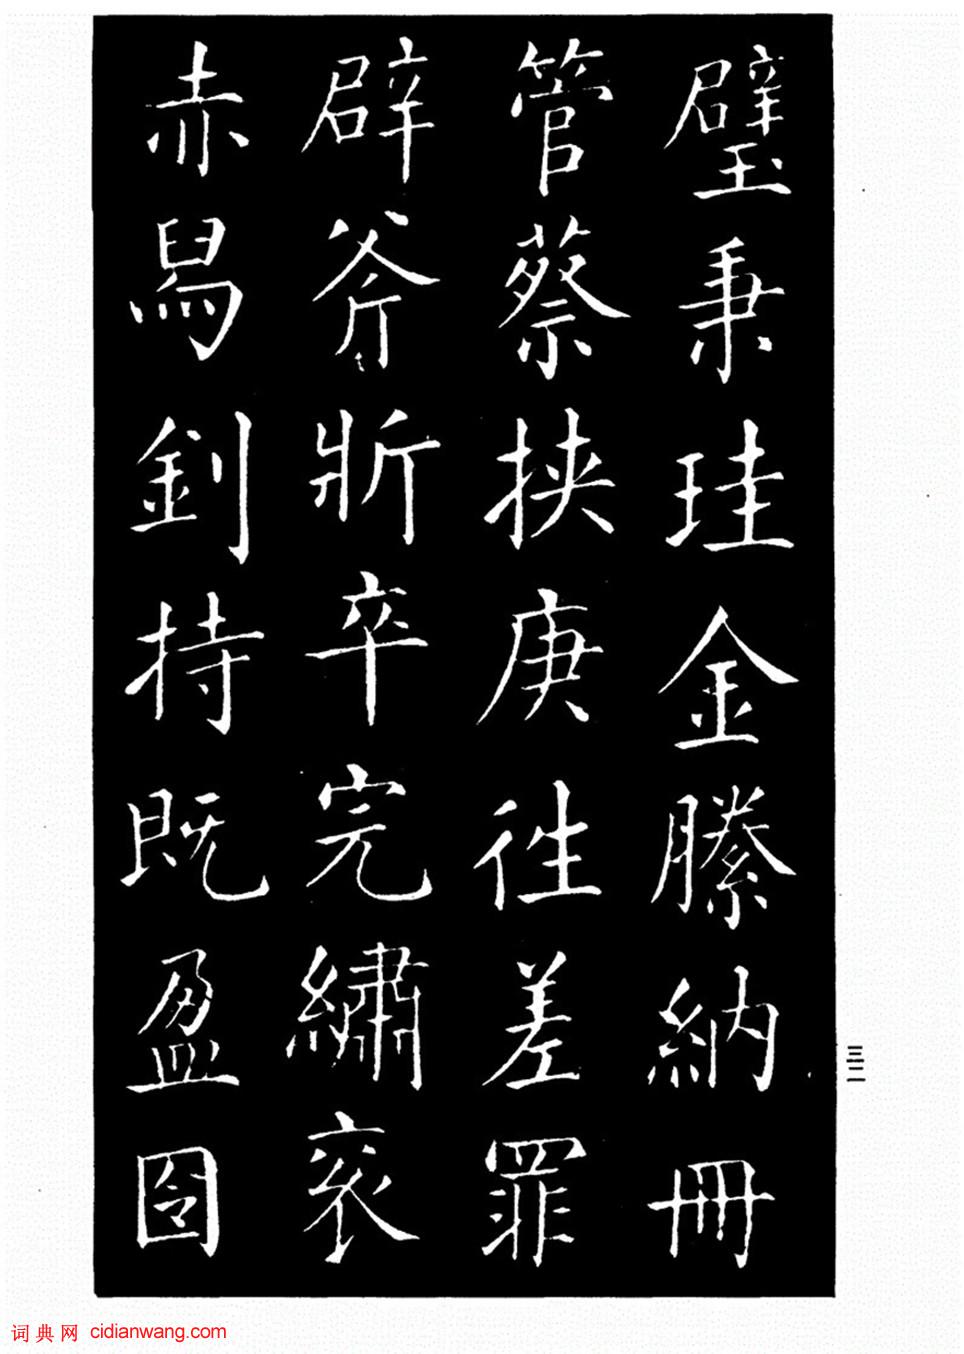 璧秉珪金縢納冊
管蔡挟庚徃差罪
辟斧斨卒完繡衮
赤舄釗持既盈囹
三二
词典网 cidianwang.com